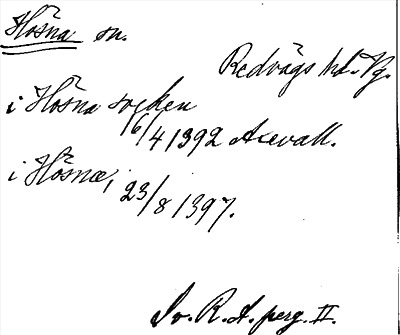 Hösna sn.
Redvägs hd. Vg.
i Hösna socken
16/4 1392 Acevall.
i Hösnæ, 23/8 1397.
Sv. R. A. perg. II.